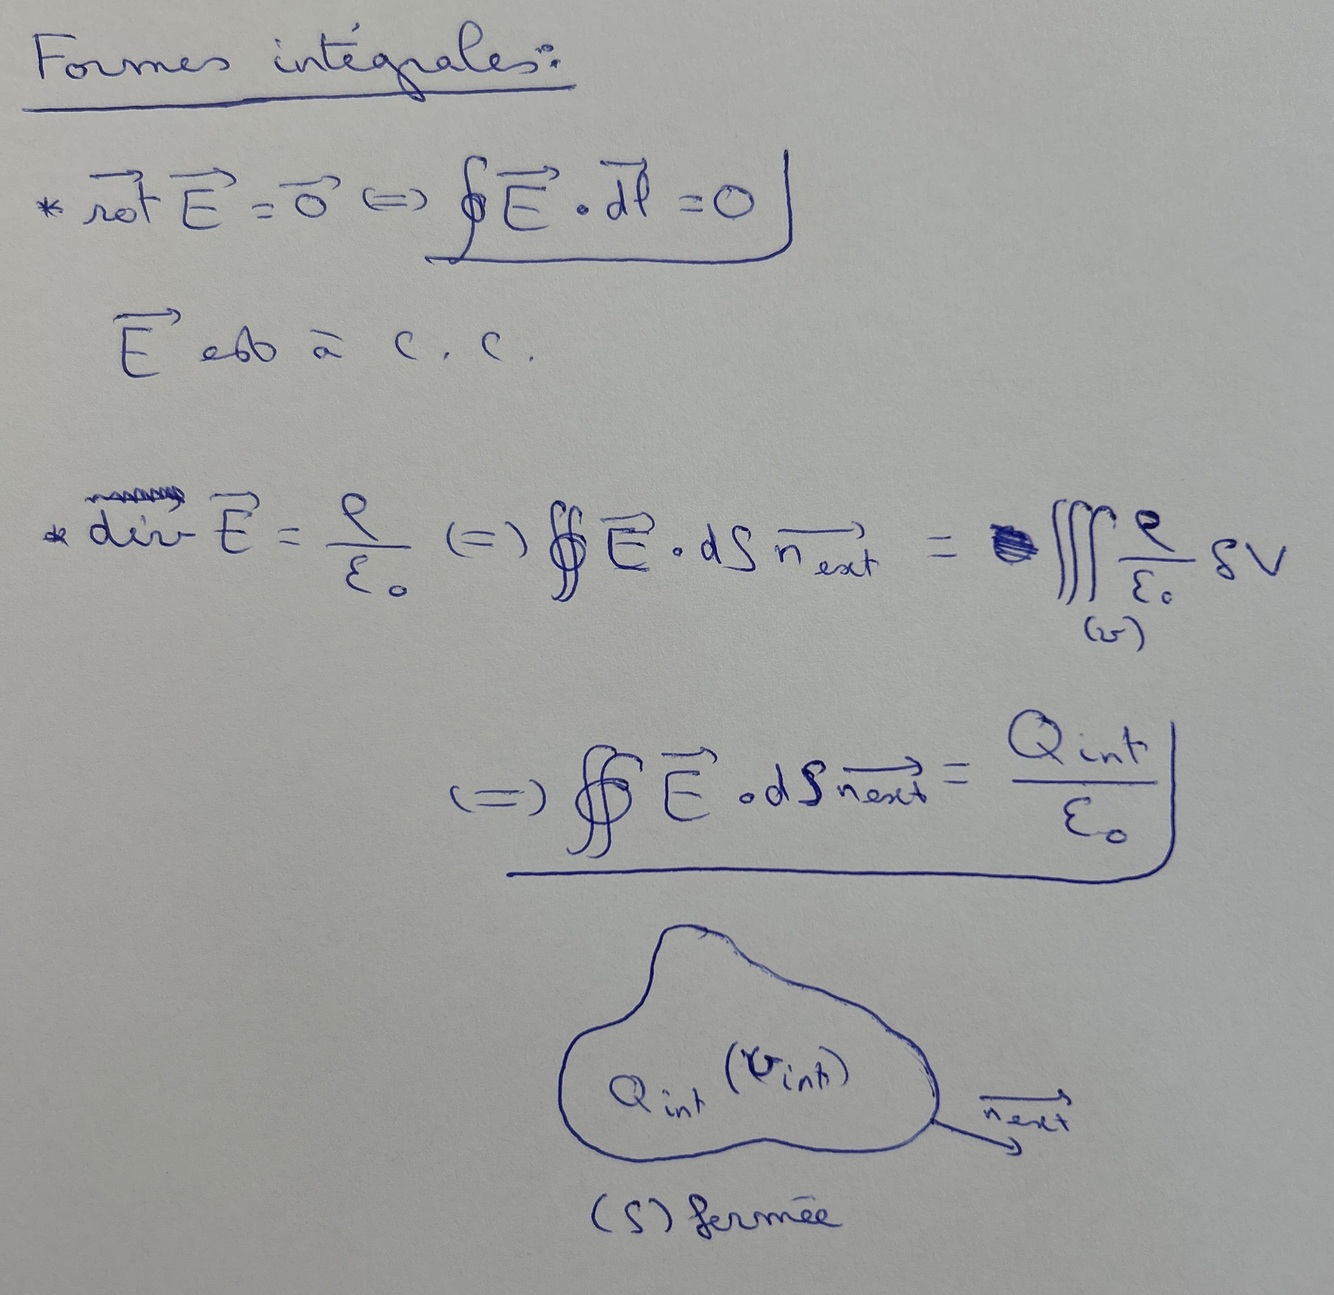 Formes intégrales:
* $\overrightarrow{rot}\,\vec{E} = \vec{0} \Leftrightarrow \oint \vec{E} \cdot \overrightarrow{dl} = 0$
$\vec{E}$ est à c.c.
* $div\,\vec{E} = \frac{\rho}{\varepsilon_0} \Leftrightarrow \oiint \vec{E} \cdot dS\,\overrightarrow{n_{ext}} = \iiint_{(v)} \frac{\rho}{\varepsilon_0} \delta V$
$\Leftrightarrow \oiint \vec{E} \cdot dS\,\overrightarrow{n_{ext}} = \frac{Q_{int}}{\varepsilon_0}$
$Q_{int}$ $(v_{int})$
$\overrightarrow{n_{ext}}$
(S) fermée